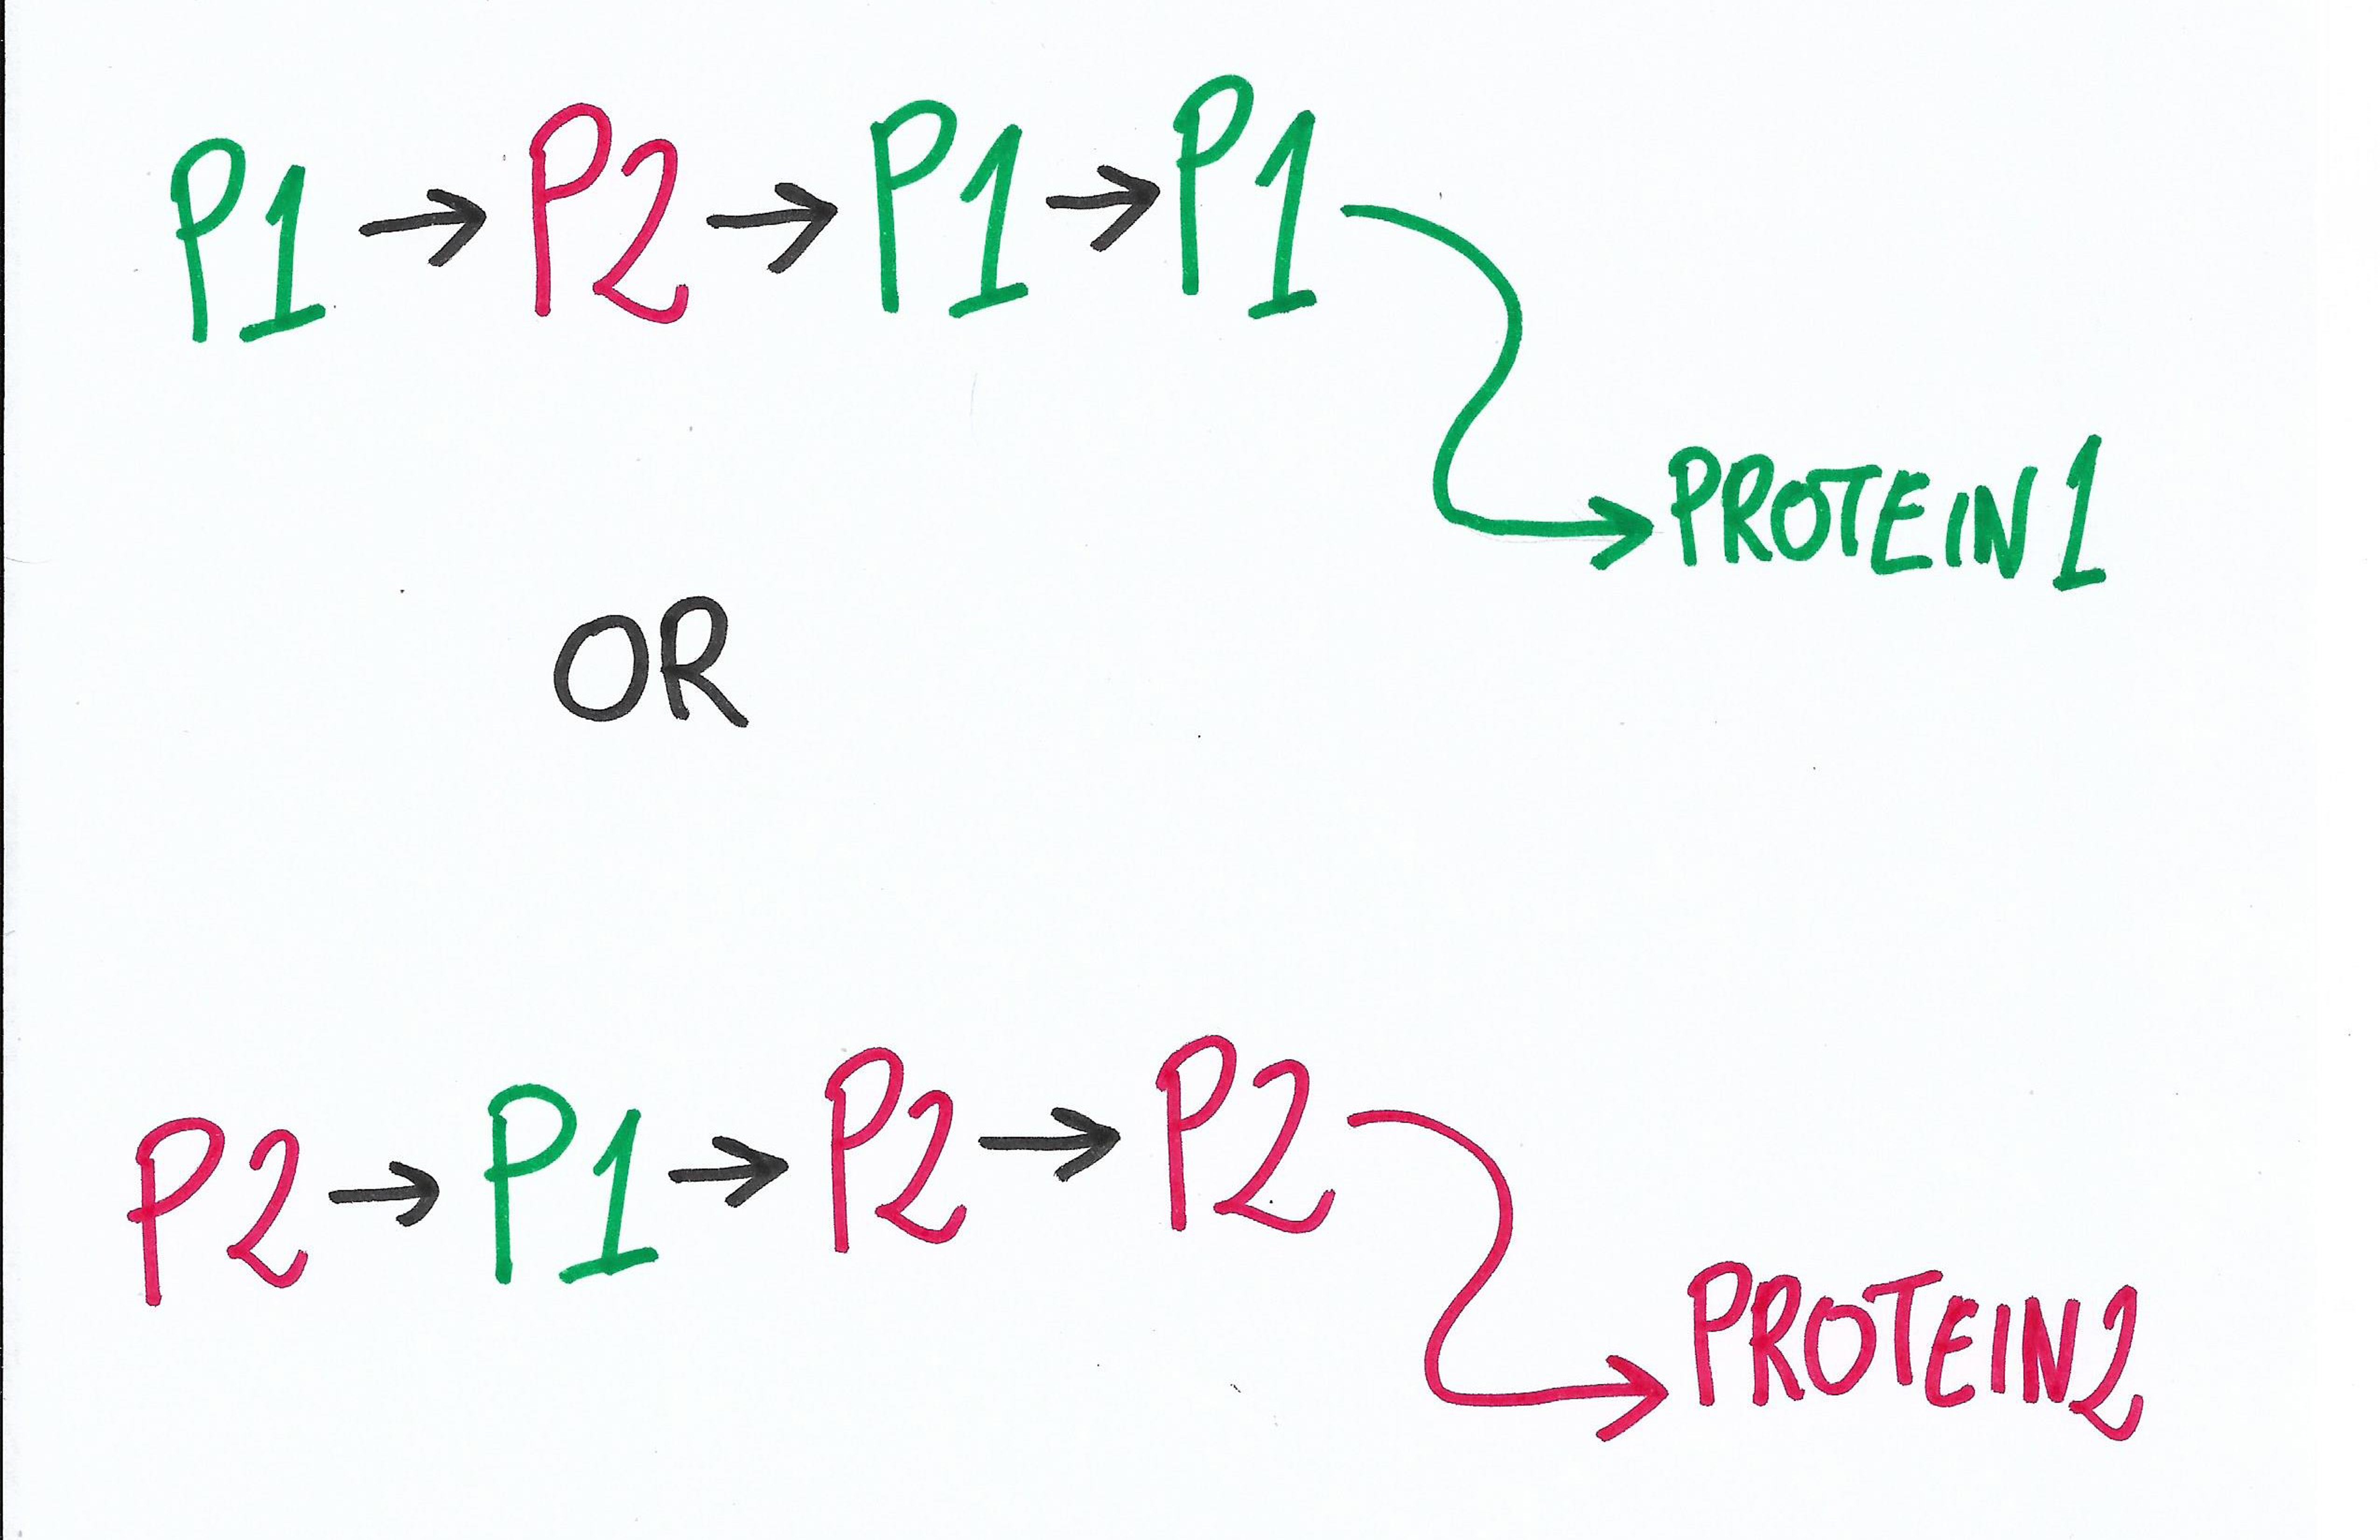 P1 → P2 → P1 → P1
PROTEIN 1
OR
P2 → P1 → P2 → P2
PROTEIN 2